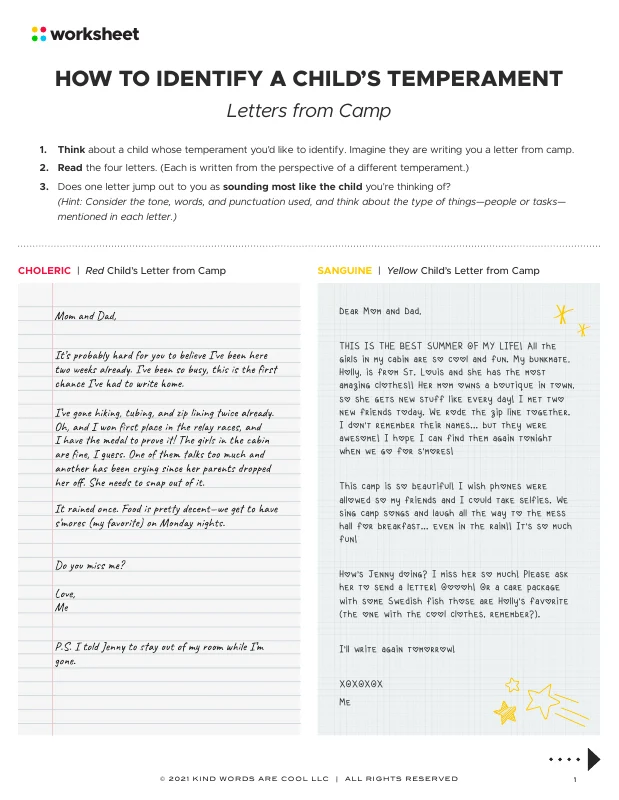 worksheet
HOW TO IDENTIFY A CHILD'S TEMPERAMENT
Letters from Camp
1. Think about a child whose temperament you'd like to identify. Imagine they are writing you a letter from camp.
2. Read the four letters. (Each is written from the perspective of a different temperament.)
3. Does one letter jump out to you as sounding most like the child you're thinking of?
(Hint: Consider the tone, words, and punctuation used, and think about the type of things—people or tasks—
mentioned in each letter.)
CHOLERIC | Red Child's Letter from Camp
Mom and Dad,
It's probably hard for you to believe I've been here
two weeks already. I've been so busy, this is the first
chance I've had to write home.
I've gone hiking, tubing, and zip lining twice already.
Oh, and I won first place in the relay races, and
I have the medal to prove it! The girls in the cabin
are fine, I guess. One of them talks too much and
another has been crying since her parents dropped
her off. She needs to snap out of it.
It rained once. Food is pretty decent—we get to have
s'mores (my favorite) on Monday nights.
Do you miss me?
Love,
Me
P.S. I told Jenny to stay out of my room while I'm
gone.
SANGUINE | Yellow Child's Letter from Camp
Dear Mom and Dad,
THIS IS THE BEST SUMMER OF MY LIFE! All the
girls in my cabin are so cool and fun. My bunkmate,
Holly, is from St. Louis and she has the most
amazing clothes!! Her mom owns a boutique in town,
so she gets new stuff like every day! I met two
new friends today. We rode the zip line together.
I don't remember their names... but they were
awesome! I hope I can find them again tonight
when we go for s'mores!
This camp is so beautiful! I wish phones were
allowed so my friends and I could take selfies. We
sing camp songs and laugh all the way to the mess
hall for breakfast... even in the rain!! It's so much
fun!
How's Jenny doing? I miss her so much! Please ask
her to send a letter! Ooooh! Or a care package
with some Swedish fish those are Holly's favorite
(the one with the cool clothes, remember?).
I'll write again tomorrow!
XOXOXOX
Me
© 2021 KIND WORDS ARE COOL LLC | ALL RIGHTS RESERVED
1